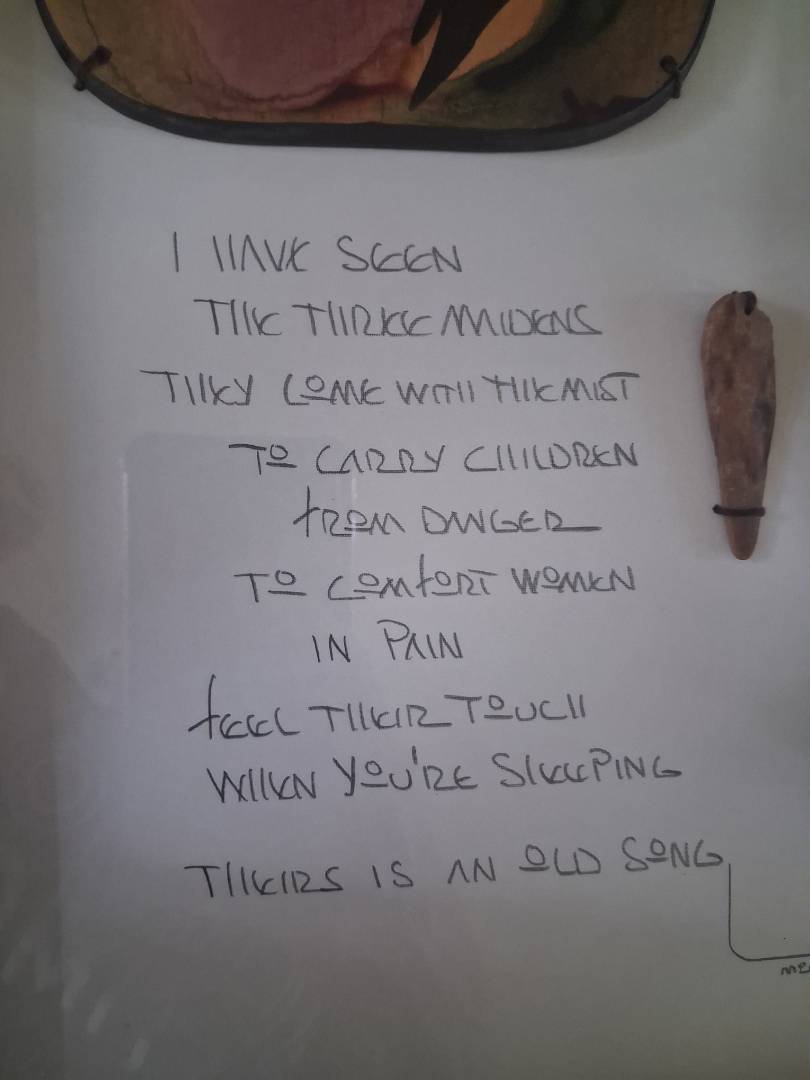 I HAVE SEEN
THE THREE MAIDENS
THEY COME WITH THE MIST
TO CARRY CHILDREN
FROM DANGER
TO COMFORT WOMEN
IN PAIN
FEEL THEIR TOUCH
WHEN YOU'RE SLEEPING
THEIRS IS AN OLD SONG